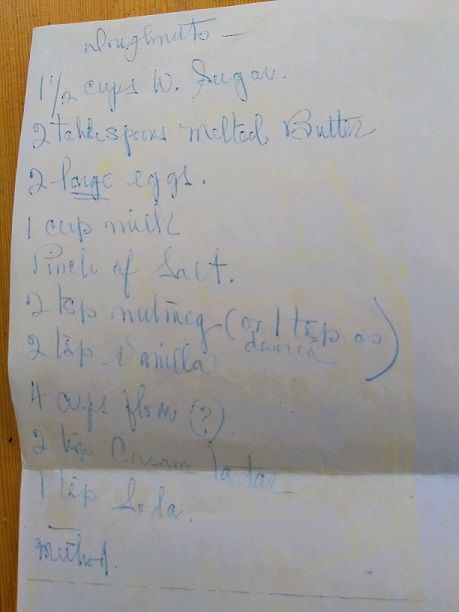 Doughnuts —
1 1/2 cups W. Sugar.
2 tablespoons melted Butter
2 large eggs.
1 cup milk
Pinch of Salt.
2 tsp nutmeg (or 1 tsp as desired)
2 tsp Vanilla
4 cups flour (?)
2 tsp Cream Tartar
1 tsp Soda.
Method.